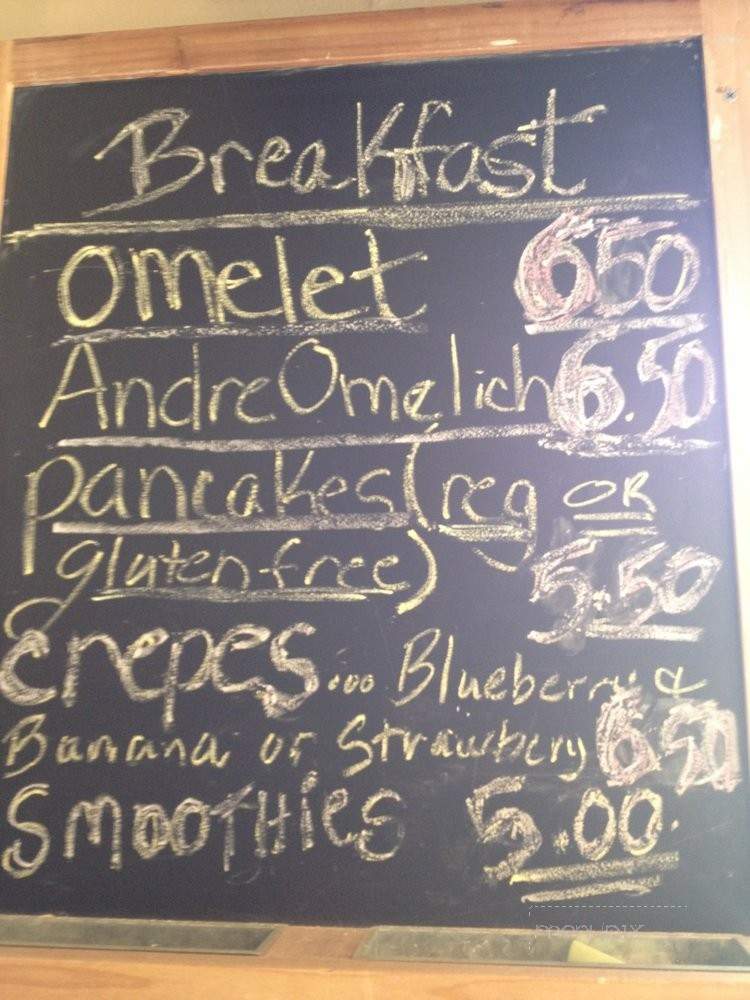 Breakfast
omelet 650
Andre Omelich 6.50
pancakes (reg OR
gluten-free) 5.50
Crepes... Blueberry &
Banana or Strawbery 6.50
SMOOTHies 5.00.
menupix